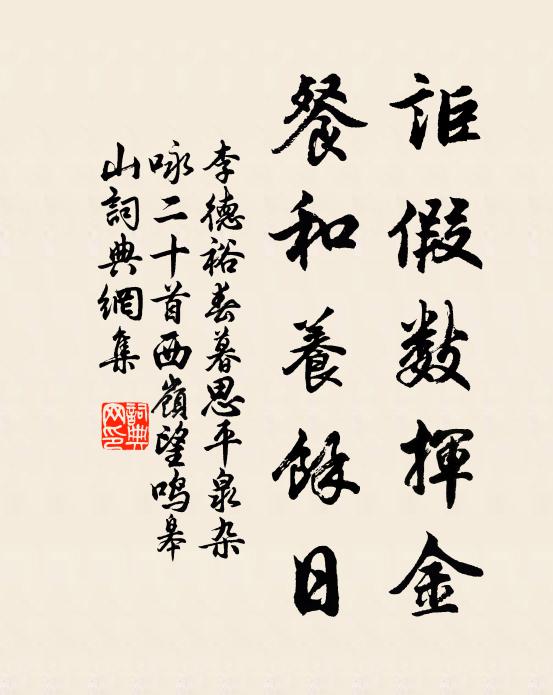 詎假數揮金
餐和養餘日
李德裕春暮思平泉杂
咏二十首西嶺望鸣皋
山詞典網集
詞典网印